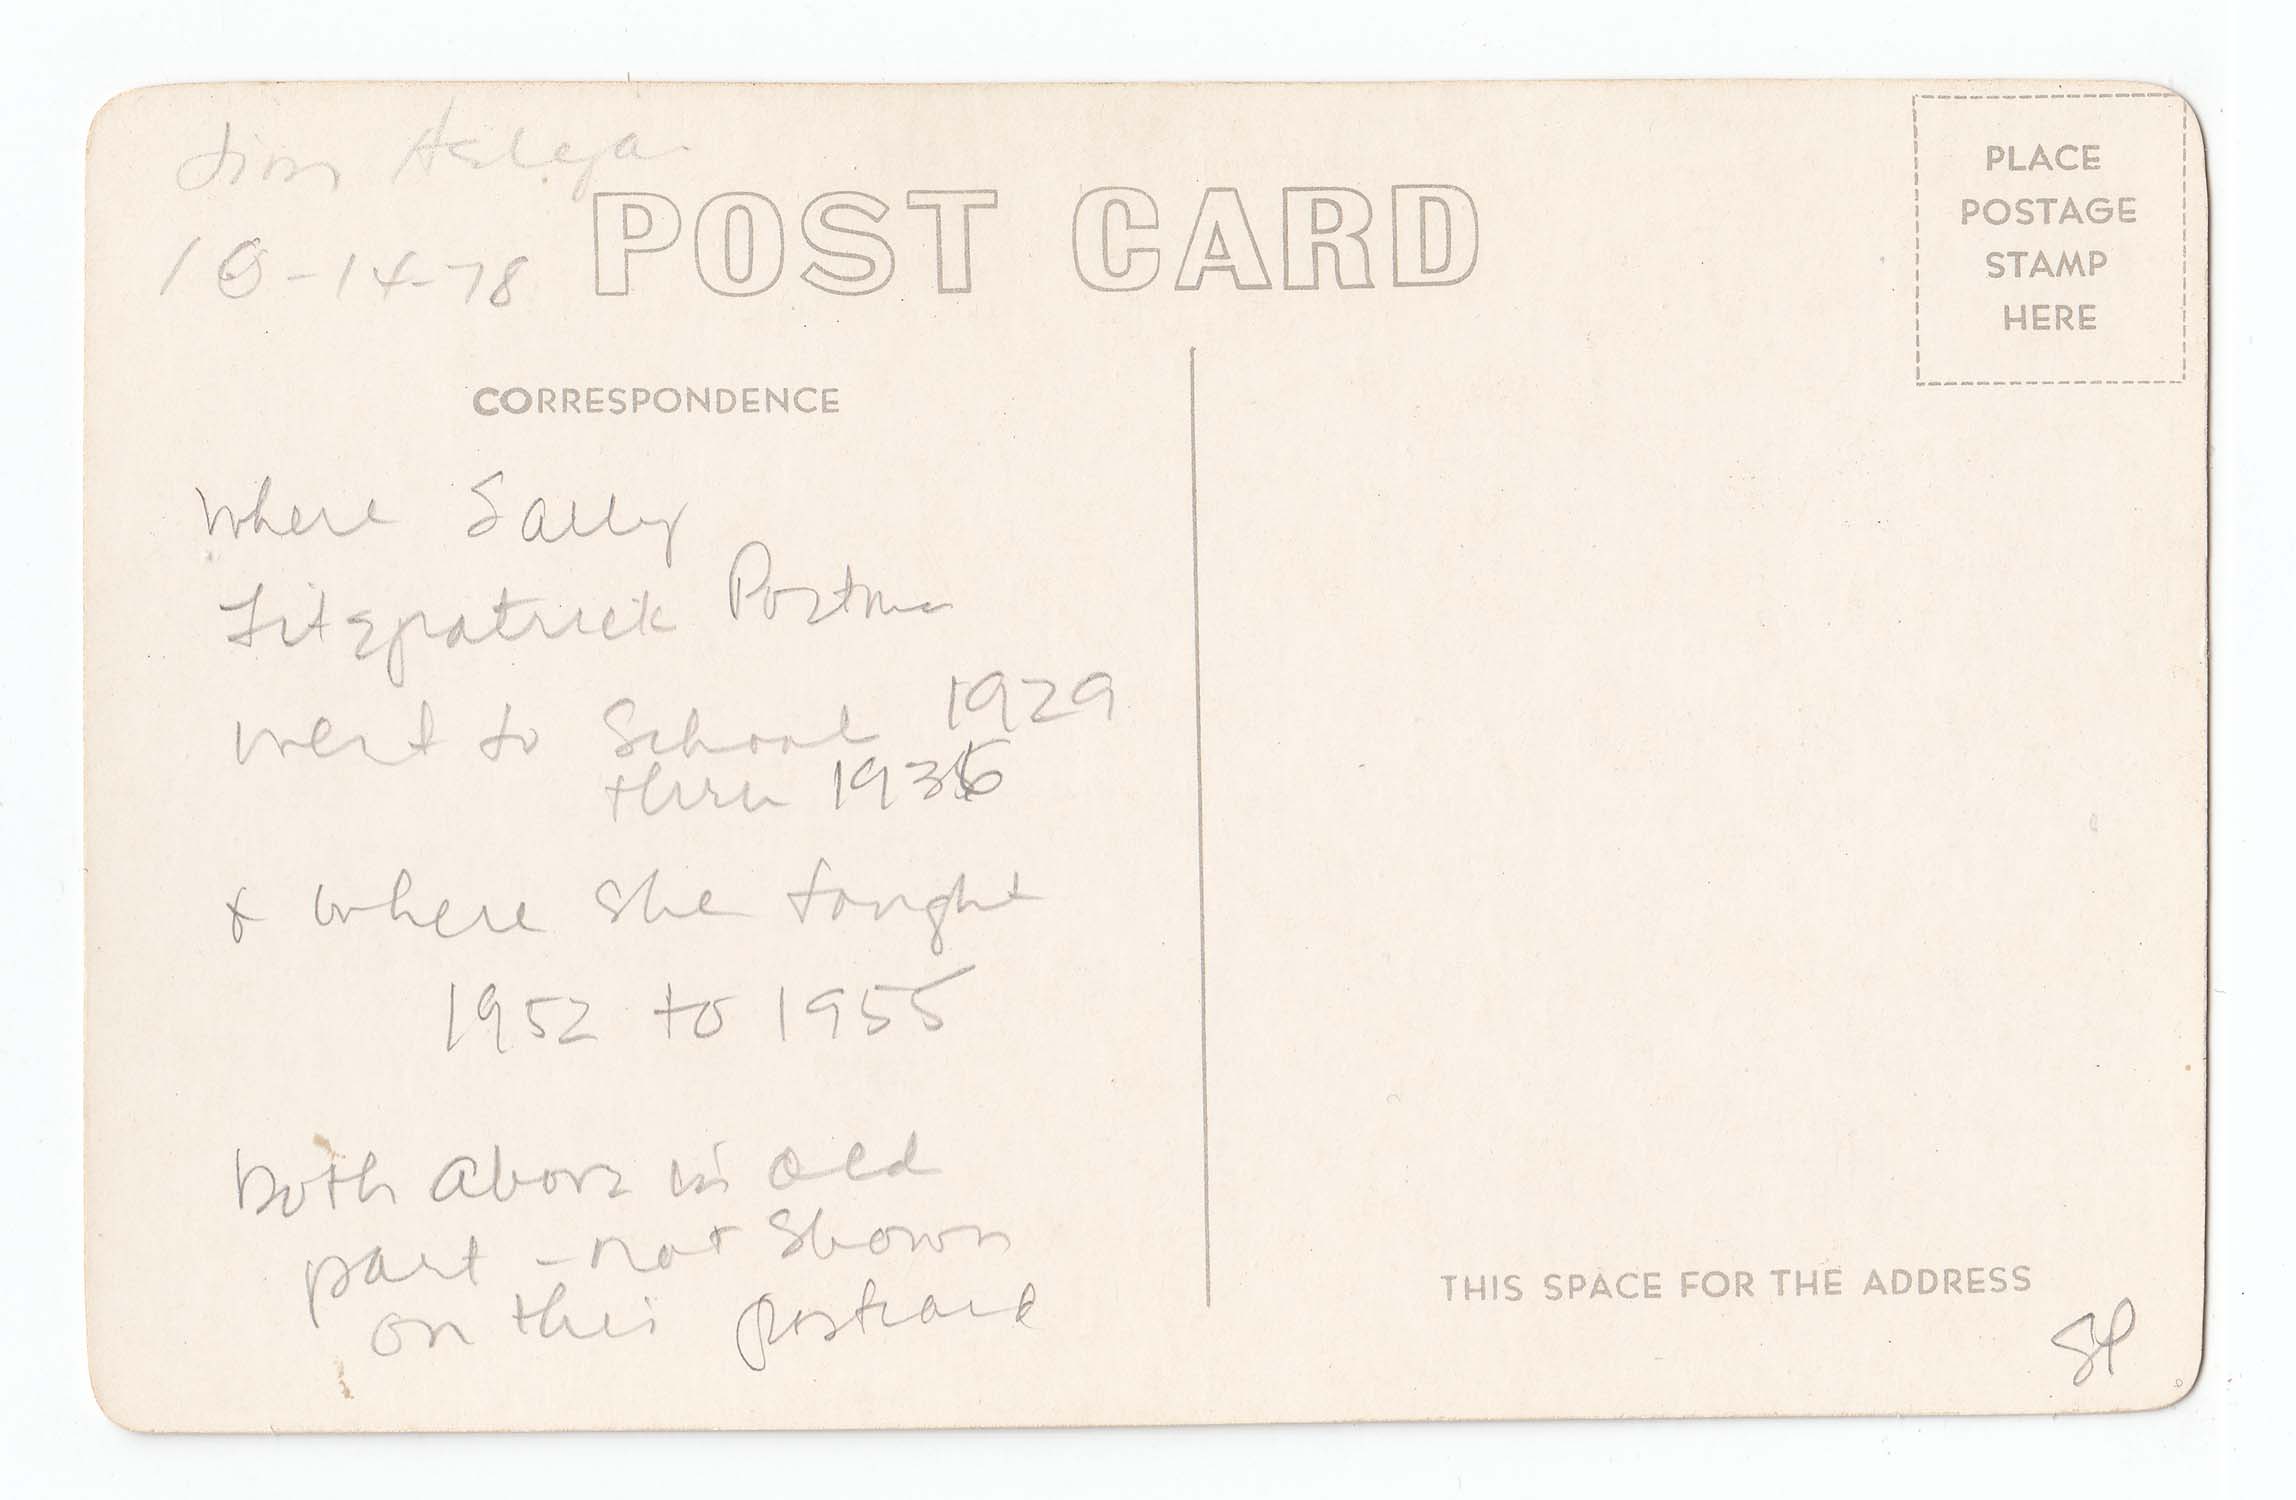 Jim
10-14-78
POST CARD
PLACE
POSTAGE
STAMP
HERE
CORRESPONDENCE
Where Sally
Fitzpatrick Postma
went to School 1929
thru 1936
& where she taught
1952 to 1955
both above in old
part - not shown
on this postcard
THIS SPACE FOR THE ADDRESS